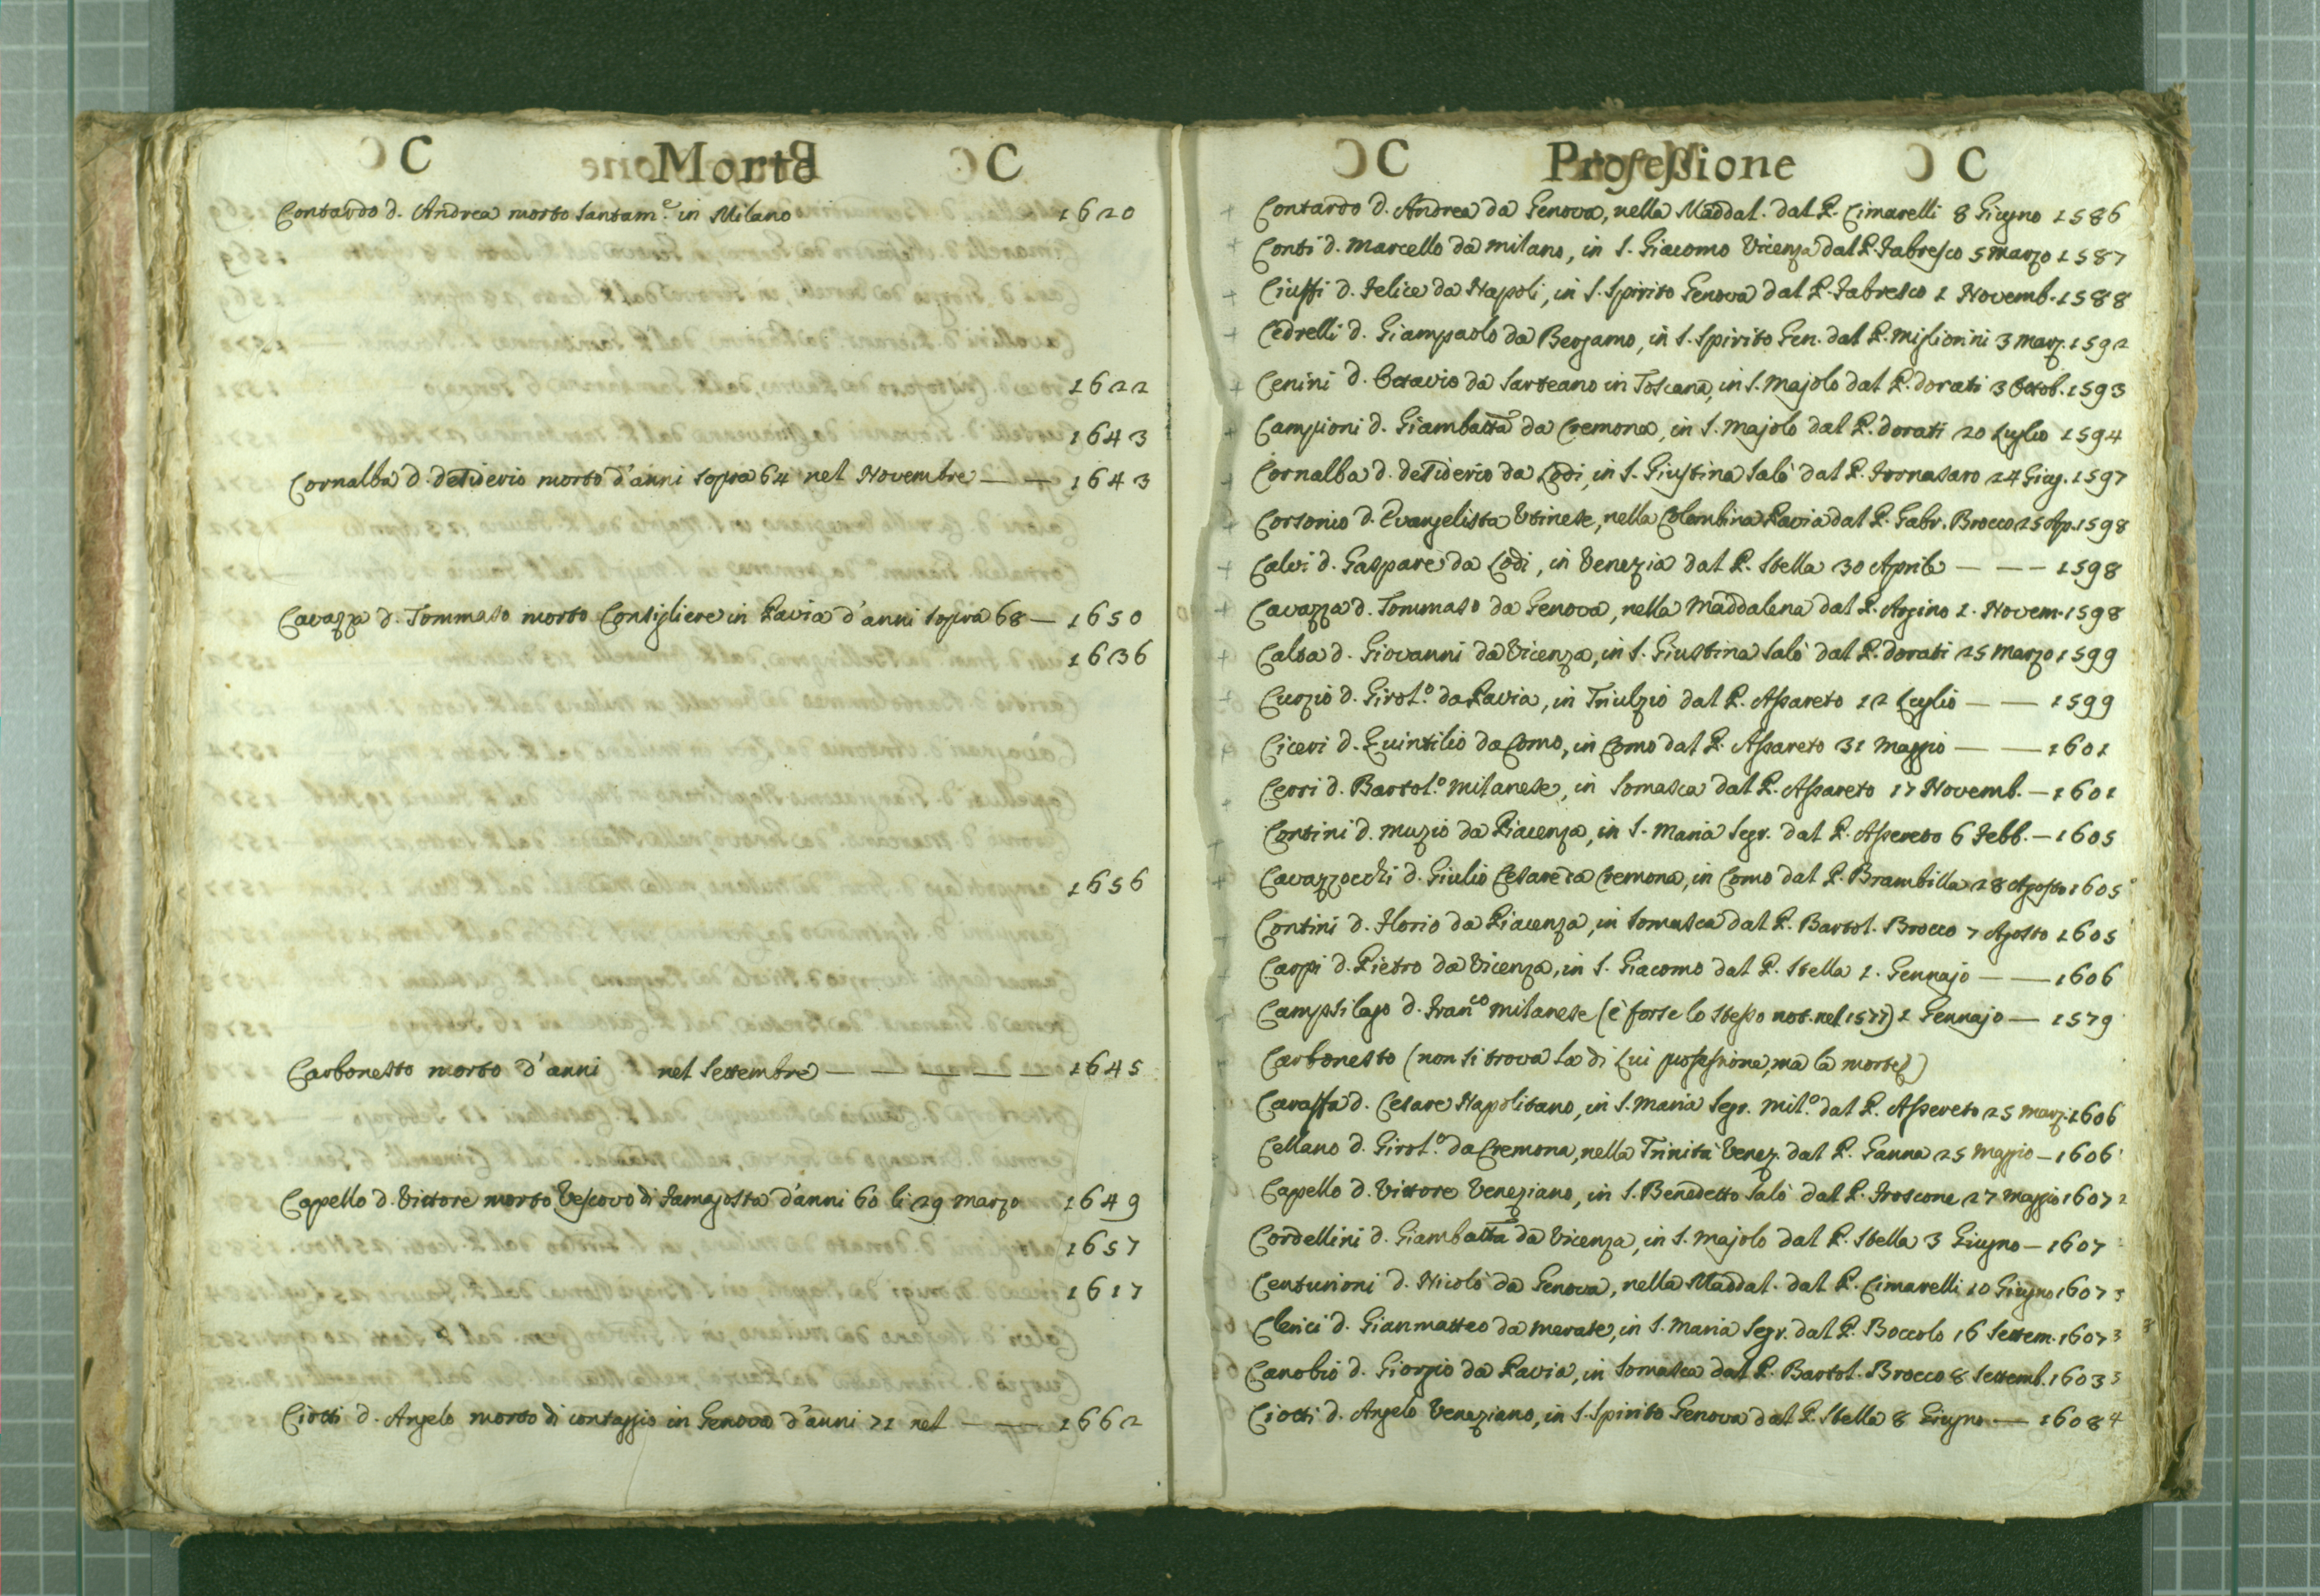 C Morte C
Contardo d. Andrea morto santam.e in Milano 1620
1622
1643
Cornalba d. desiderio morto d'anni sopra 64 nel Novembre — — 1643
Cavazza d. Tommaso morto Consigliere in Pavia d'anni sopra 68 — 1650
1636
1656
Carbonetto morto d'anni nel Settembre — — — — — 1645
Capello d. Vittore morto Vescovo di Famagosta d'anni 60 li 29 marzo 1649
1657
1617
Ciotti d. Angelo morto di contaggio in Genova d'anni 71 nel — — 1662
C Professione C
+ Contardo d. Andrea da Genova, nella Maddal. dal P. Cimarelli 8 Giugno 1586
+ Conti d. Marcello da Milano, in S. Giacomo Vicenza dal P. Fabresco 5 marzo 1587
+ Ciuffi d. Felice da Napoli, in S. Spirito Genova dal P. Fabresco 1 Novemb. 1588
+ Cedrelli d. Giampaolo da Bergamo, in S. Spirito Gen. dal P. Migliorini 3 marz. 1592
+ Cenini d. Octavio da Sarteano in Toscana, in S. Majolo dal P. Dorati 3 Octob. 1593
+ Campioni d. Giambatta da Cremona, in S. Majolo dal P. Dorati 20 Luglio 1594
+ Cornalba d. desiderio da Lodi, in S. Giustina Salò dal P. Fornasaro 24 Giug. 1597
+ Corsonio d. Evangelista Utinese, nella Colombina Pavia dal P. Gabr. Brocco 25 Ap. 1598
+ Calvi d. Gaspare da Lodi, in Venezia dal P. Stella 30 Aprile — — — 1598
+ Cavazza d. Tommaso da Genova, nella Maddalena dal P. Argino 1. Novem. 1598
+ Calsa d. Giovanni da Vicenza, in S. Giustina Salò dal P. Dorati 25 Marzo 1599
Curzio d. Girol.o da Pavia, in Triulzio dal P. Assareto 12 Luglio — — 1599
+ Ciceri d. Quintilio da Como, in Como dal P. Assareto 31 Maggio — — 1601
+ Cerri d. Bartol.o Milanese, in Somasca dal P. Assareto 17 Novemb. — 1601
+ Contini d. Muzio da Piacenza, in S. Maria Segr. dal P. Assereto 6 Febb. — 1605
+ Cavazzocchi d. Giulio Cesare da Cremona, in Como dal P. Brambilla 28 Agosto 1605
Contini d. Florio da Piacenza, in Somasca dal P. Bartol. Brocco 7 Agosto 1605
Carpi d. Pietro da Vicenza, in S. Giacomo dal P. Stella 1. Gennajo — — 1606
Campsilago d. Fran.co Milanese (è forse lo stesso not. nel 1577) 1 Gennajo — 1579
Carbonetto (non si trova la di Lui professione, ma la morte)
Caraffa d. Cesare Napolitano, in S. Maria Segr. Mil.o dal P. Assereto 25 Marz. 1606
Cellano d. Girol.o da Cremona, nella Trinità Venez. dal P. Ganna 25 Maggio — 1606
Capello d. Vittore Veneziano, in S. Benedetto Salò dal P. Froscone 27 Maggio 1607
Cordellini d. Giambatta da Vicenza, in S. Majolo dal P. Stella 3 Giugno — 1607
Centurioni d. Nicolò da Genova, nella Maddal. dal P. Cimarelli 10 Giugno 1607
Clerici d. Gianmatteo da Merate, in S. Maria Segr. dal P. Boccolo 16 Settem. 1607
Canobio d. Giorgio da Pavia, in Somasca dal P. Bartol. Brocco 8 Settemb. 1603
Ciotti d. Angelo Veneziano, in S. Spirito Genova dal P. Stella 8 Giugno — 1608